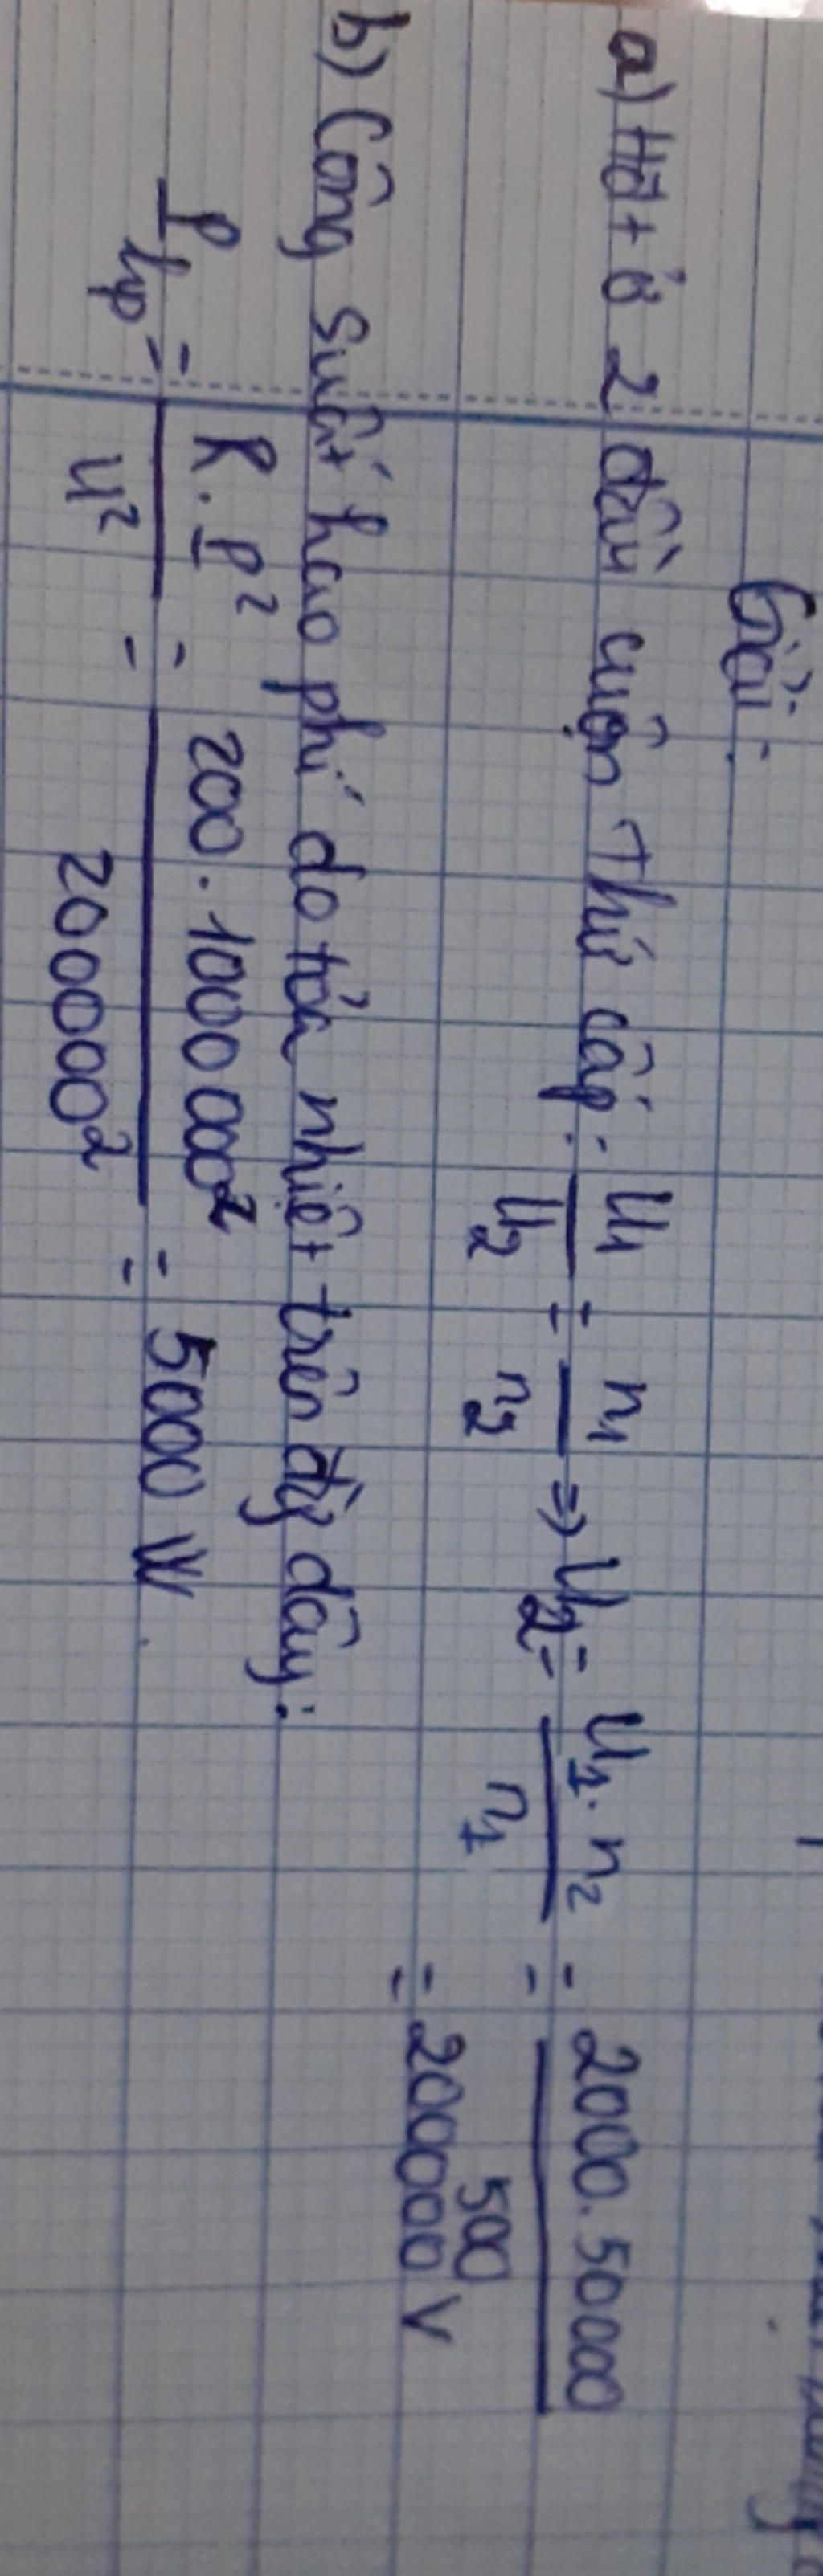 Giải:
a) Hđt ở 2 đầu cuộn thứ cấp: U1/U2 = n1/n2 => U2 = U1.n2/n1 = 2000.50000/500
= 200000 V
b) Công suất hao phí do tỏa nhiệt trên đg dây:
Php = R.P²/U² = 200.1000000²/200000² = 5000 W.